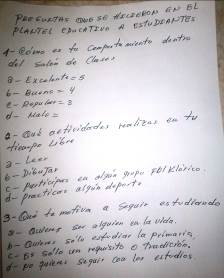 PREGUNTAS QUE SE HICIERON EN EL
PLANTEL EDUCATIVO A ESTUDIANTES
1- Cómo es tu Comportamiento dentro
del Salón de Clases
a - Excelente = 5
b - Bueno = 4
c - Regular = 3
d - Malo =
2 - Qué actividades realizas en tu
tiempo Libre
a - Leer
b - Dibujar
c - participas en algún grupo Folklórico.
d - practicas algún deporte
3 - Qué te motiva a Seguir estudiando
a - Quieres ser alguien en la vida.
b - Quieres sólo estudiar la primaria
c - Es Sólo un requisito o Tradición.
d - no quieres Seguir con los estudios.